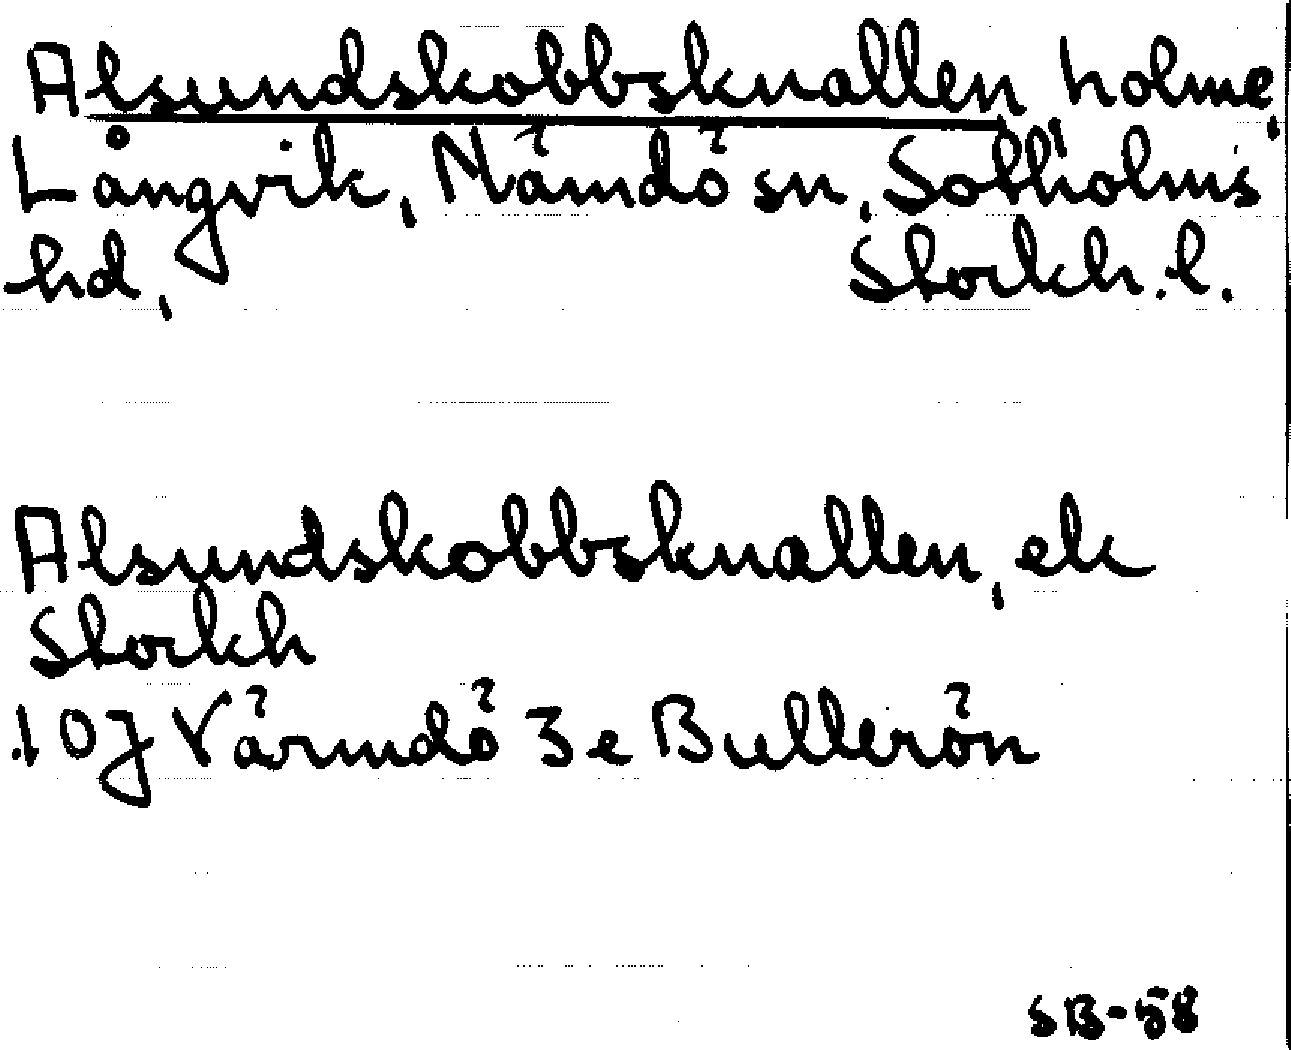 Alsundskobbsknallen holme,
Långvik, Nämdö sn, Sotholms
hd, Stockh. l.
Alsundskobbsknallen, ek
Stockh
10J Värmdö 3e Bullerön
SB-58